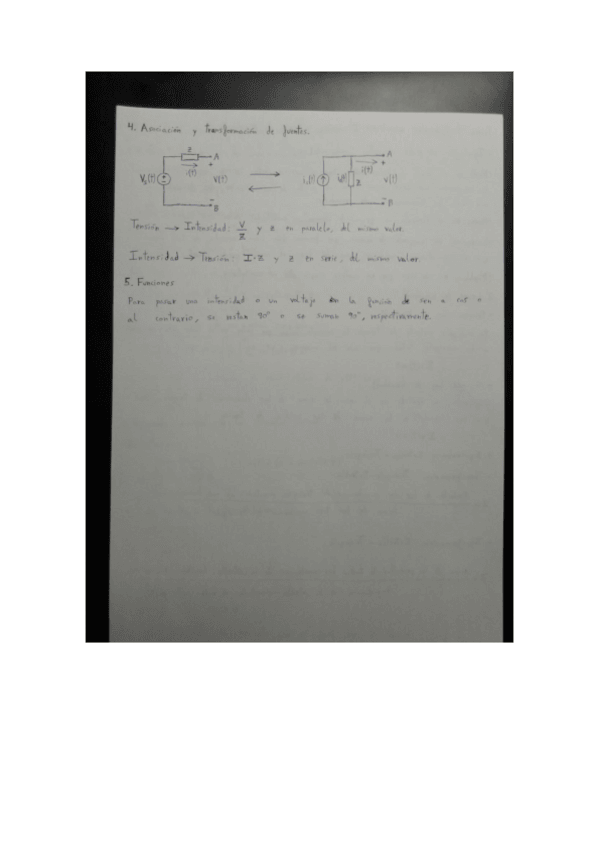 4. Asociación y transformación de fuentes.
Z A
+
i(t)
Vg(t) V(t)
-
B
A
i(t) +
Z v(t)
-
B
Tensión → Intensidad: V/Z y Z en paralelo, del mismo valor.
Intensidad → Tensión: I·Z y Z en serie, del mismo valor.
5. Funciones
Para pasar una intensidad o un voltaje en la función de sen a cos o
al contrario, se restan 90° o se suman 90°, respectivamente.